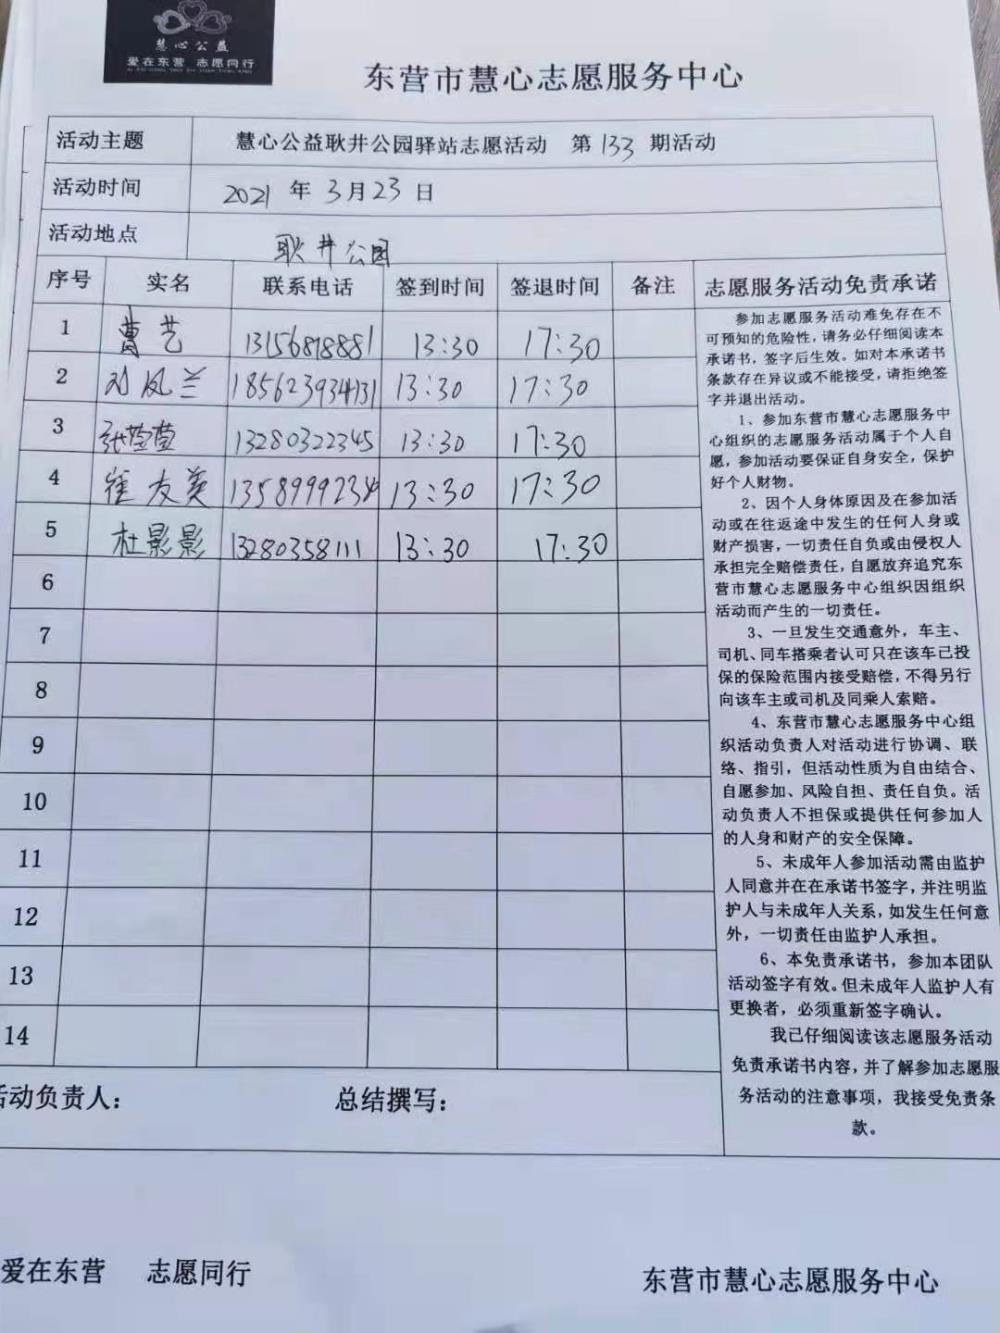 慧心公益
爱在东营 志愿同行
东营市慧心志愿服务中心
活动主题 慧心公益耿井公园驿站志愿活动 第 133 期活动
活动时间 2021 年 3 月 23 日
活动地点 耿井公园
序号 实名 联系电话 签到时间 签退时间 备注 志愿服务活动免责承诺
1 曹艺 13156818881 13:30 17:30
2 刘凤兰 18562393413 13:30 17:30
3 张萱萱 13280322345 13:30 17:30
4 崔友美 13589999234 13:30 17:30
5 杜影影 13280358111 13:30 17:30
6
7
8
9
10
11
12
13
14
参加志愿服务活动难免存在不
可预知的危险性，请务必仔细阅读本
承诺书，签字后生效。如对本承诺书
条款存在异议或不能接受，请拒绝签
字并退出活动。
1、参加东营市慧心志愿服务中
心组织的志愿服务活动属于个人自
愿，参加活动要保证自身安全，保护
好个人财物。
2、因个人身体原因及在参加活
动或在往返途中发生的任何人身或
财产损害，一切责任自负或由侵权人
承担完全赔偿责任，自愿放弃追究东
营市慧心志愿服务中心组织因组织
活动而产生的一切责任。
3、一旦发生交通意外，车主、
司机、同车搭乘者认可只在该车已投
保的保险范围内接受赔偿，不得另行
向该车主或司机及同乘人索赔。
4、东营市慧心志愿服务中心组
织活动负责人对活动进行协调、联
络、指引，但活动性质为自由结合、
自愿参加、风险自担、责任自负。活
动负责人不担保或提供任何参加人
的人身和财产的安全保障。
5、未成年人参加活动需由监护
人同意并在在承诺书签字，并注明监
护人与未成年人关系，如发生任何意
外，一切责任由监护人承担。
6、本免责承诺书，参加本团队
活动签字有效。但未成年人监护人有
更换者，必须重新签字确认。
我已仔细阅读该志愿服务活动
免责承诺书内容，并了解参加志愿服
务活动的注意事项，我接受免责条
款。
活动负责人： 总结撰写：
爱在东营 志愿同行
东营市慧心志愿服务中心